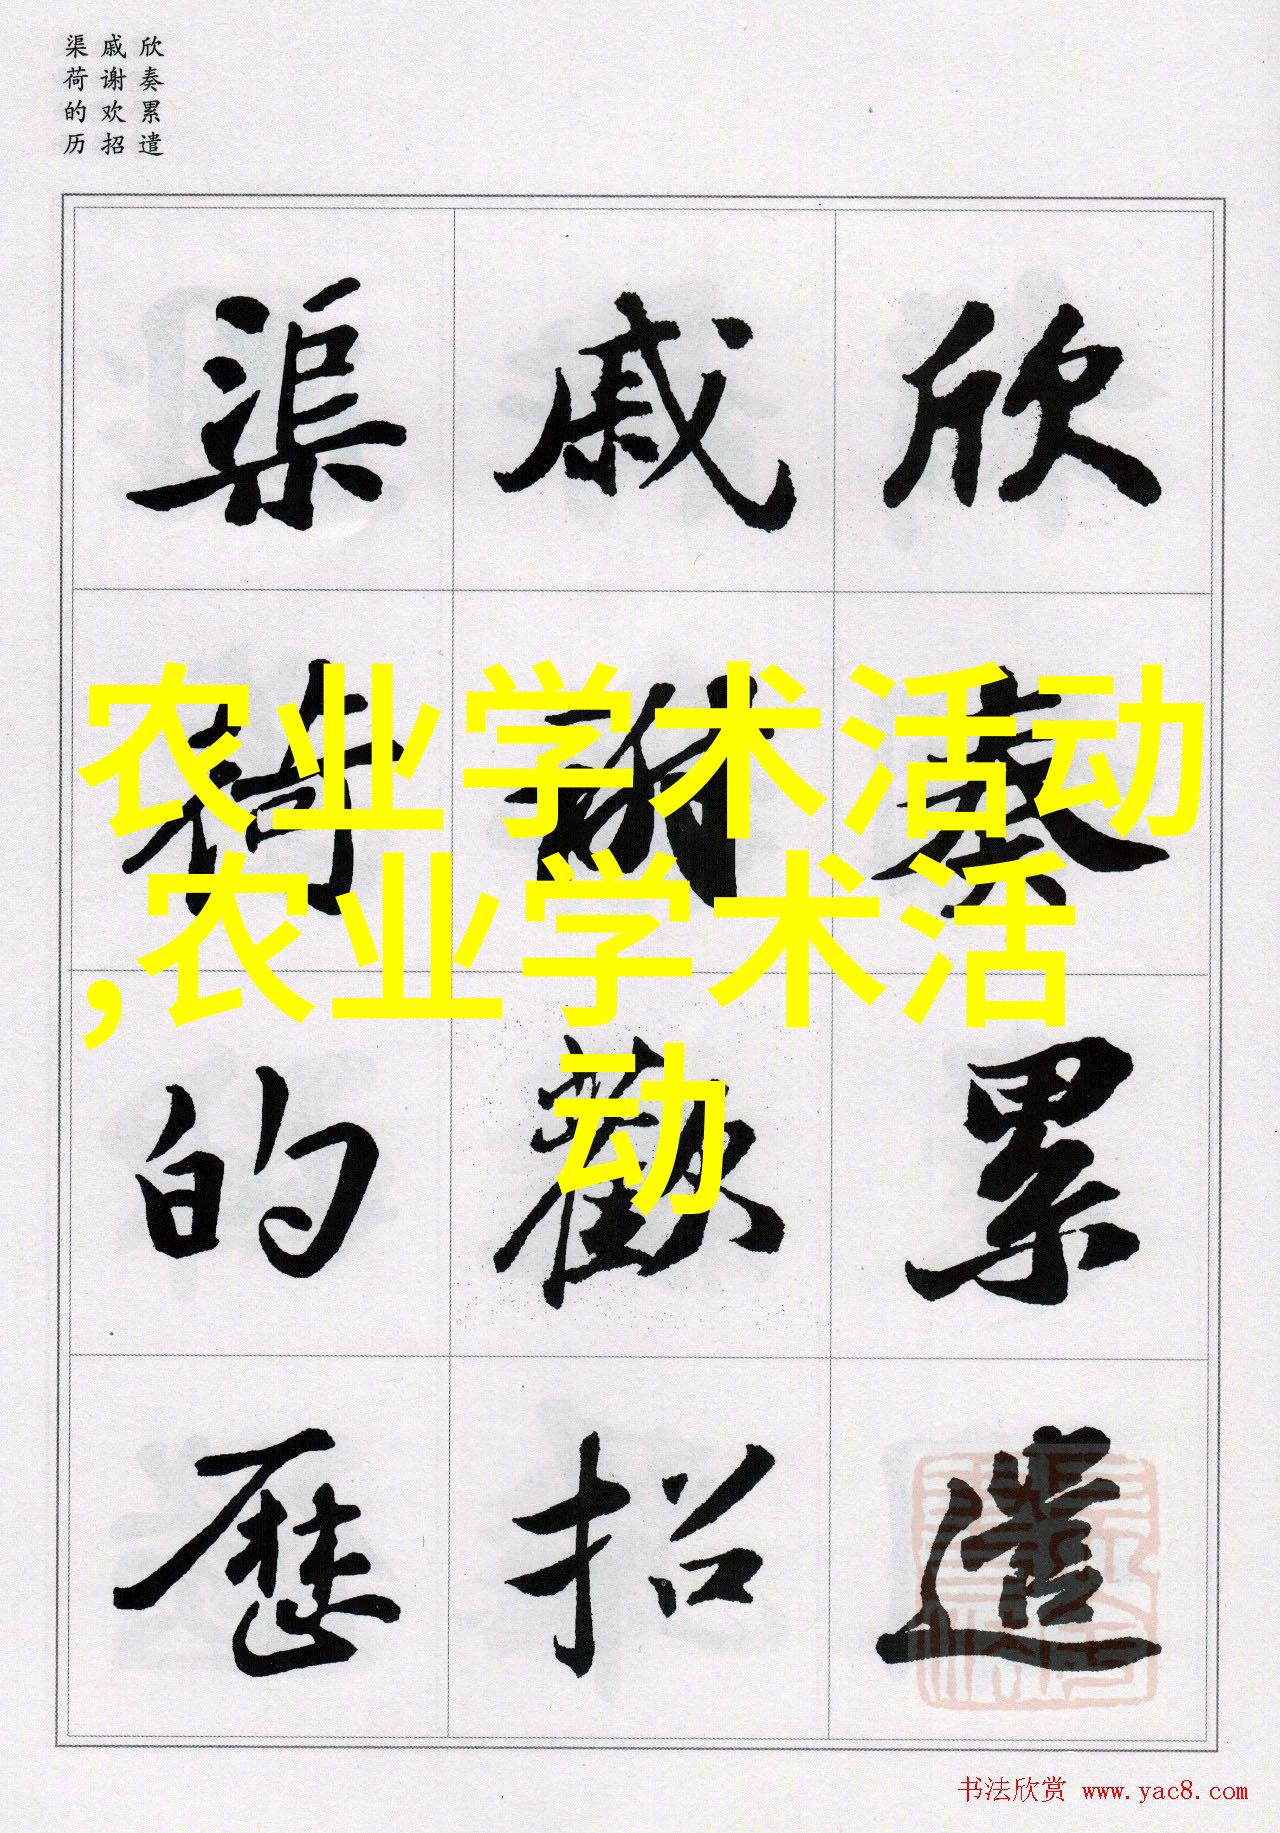 欣奏累遣
戚谢欢招
渠荷的历
欣奏累遣
戚謝歡招
渠荷的歷
农业学术活动
,农业学术活
动
书法欣赏 www.yac8.com